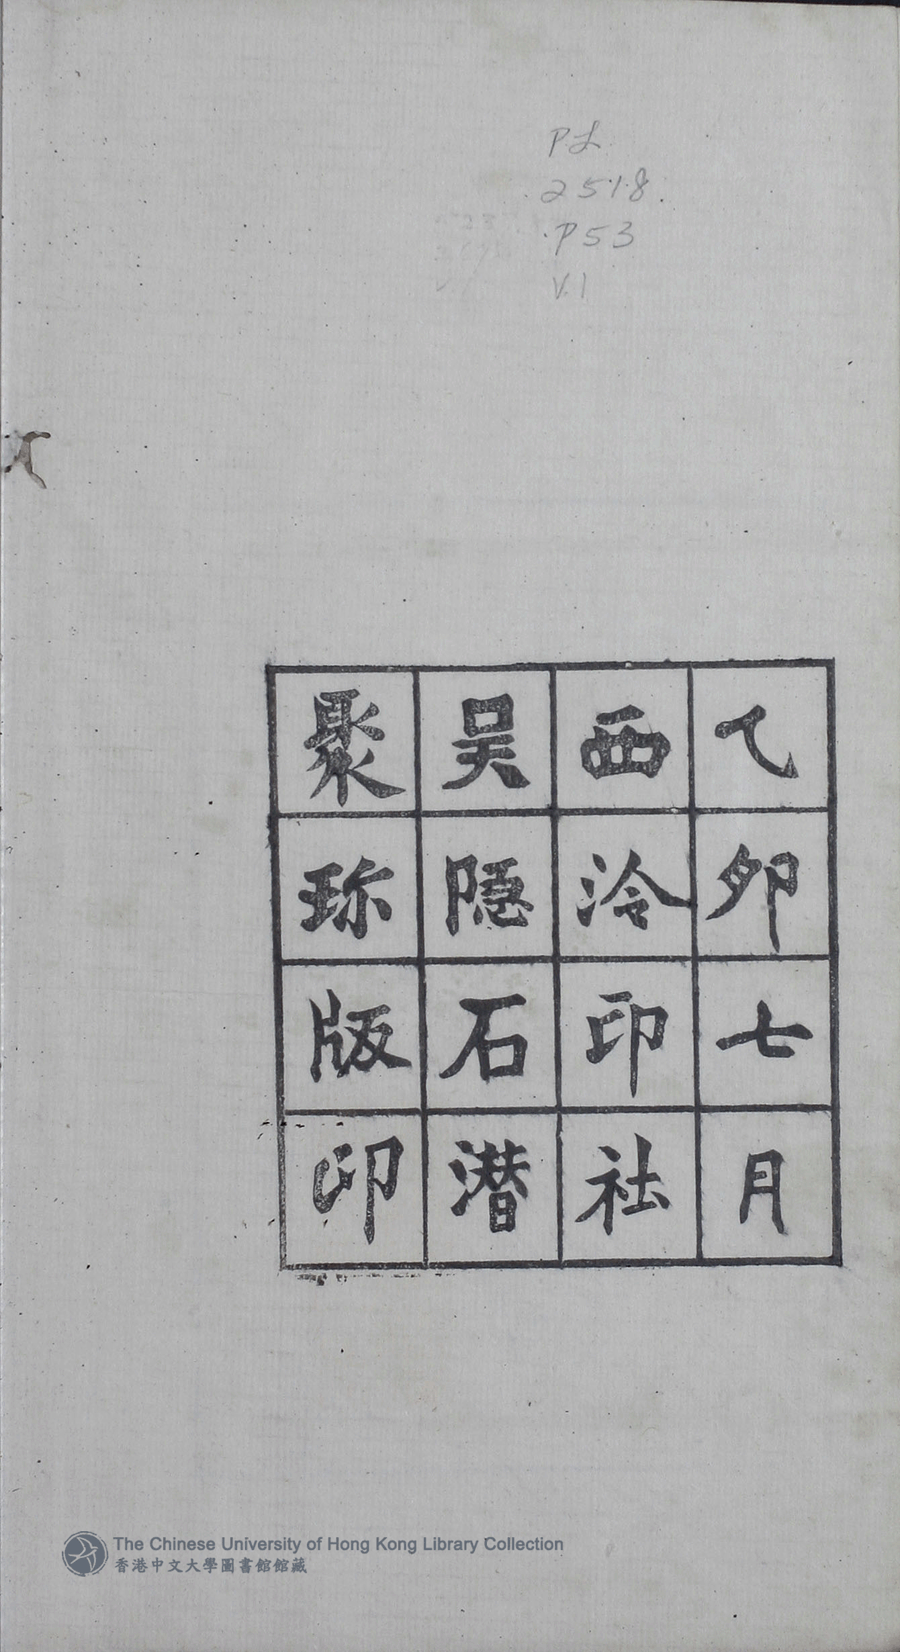 PL
2518.
.P53
V.1
乁卯七月
西泠印社
吴隠石潜
聚珎版印
The Chinese University of Hong Kong Library Collection
香港中文大學圖書館館藏